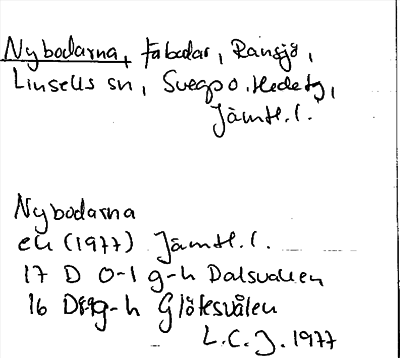 Nybodarna, fäbodar, Ransjö,
Linsells sn, Svegs o. Hede tg,
Jämtl. l.
Nybodarna
ek (1977) Jämtl. l.
17 D 0-1 g-h Dalsvallen
16 D g-h Glötesvålen
L.C.J. 1977